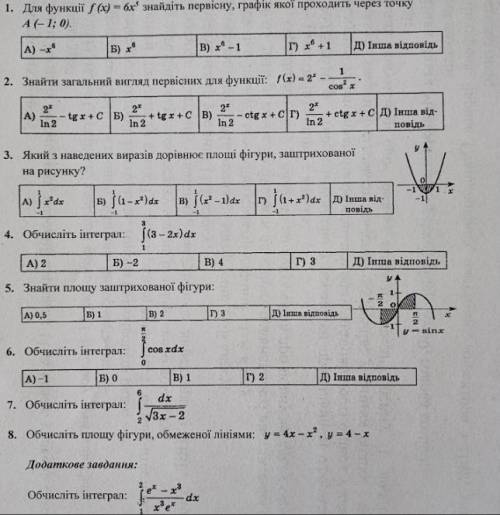 1. Для функції f (x) = 6x⁵ знайдіть первісну, графік якої проходить через точку
A (– 1; 0).
А) –x⁶ Б) x⁶ В) x⁶ – 1 Г) x⁶ + 1 Д) Інша відповідь
2. Знайти загальний вигляд первісних для функції: f(x) = 2ˣ – 1/cos² x .
А) 2ˣ/ln 2 – tg x + C Б) 2ˣ/ln 2 + tg x + C В) 2ˣ/ln 2 – ctg x + C Г) 2ˣ/ln 2 + ctg x + C Д) Інша від-
повідь
3. Який з наведених виразів дорівнює площі фігури, заштрихованої
на рисунку?
y
0
–1 1 x
–1
А) ∫₋₁¹ x²dx Б) ∫₋₁¹ (1 – x²)dx В) ∫₋₁¹ (x² – 1)dx Г) ∫₋₁¹ (1 + x²)dx Д) Інша від-
повідь
4. Обчисліть інтеграл: ∫₁³ (3 – 2x)dx
А) 2 Б) –2 В) 4 Г) 3 Д) Інша відповідь
5. Знайти площу заштрихованої фігури:
А) 0,5 Б) 1 В) 2 Г) 3 Д) Інша відповідь
y
1
–π/2 0 π/2 x
–1
y = sinx
6. Обчисліть інтеграл: ∫₀^(π/2) cos xdx
А) –1 Б) 0 В) 1 Г) 2 Д) Інша відповідь
7. Обчисліть інтеграл: ∫₂⁶ dx/√(3x – 2)
8. Обчисліть площу фігури, обмеженої лініями: y = 4x – x² , y = 4 – x
Додаткове завдання:
Обчисліть інтеграл: ∫₁² (eˣ – x³)/(x³eˣ) dx